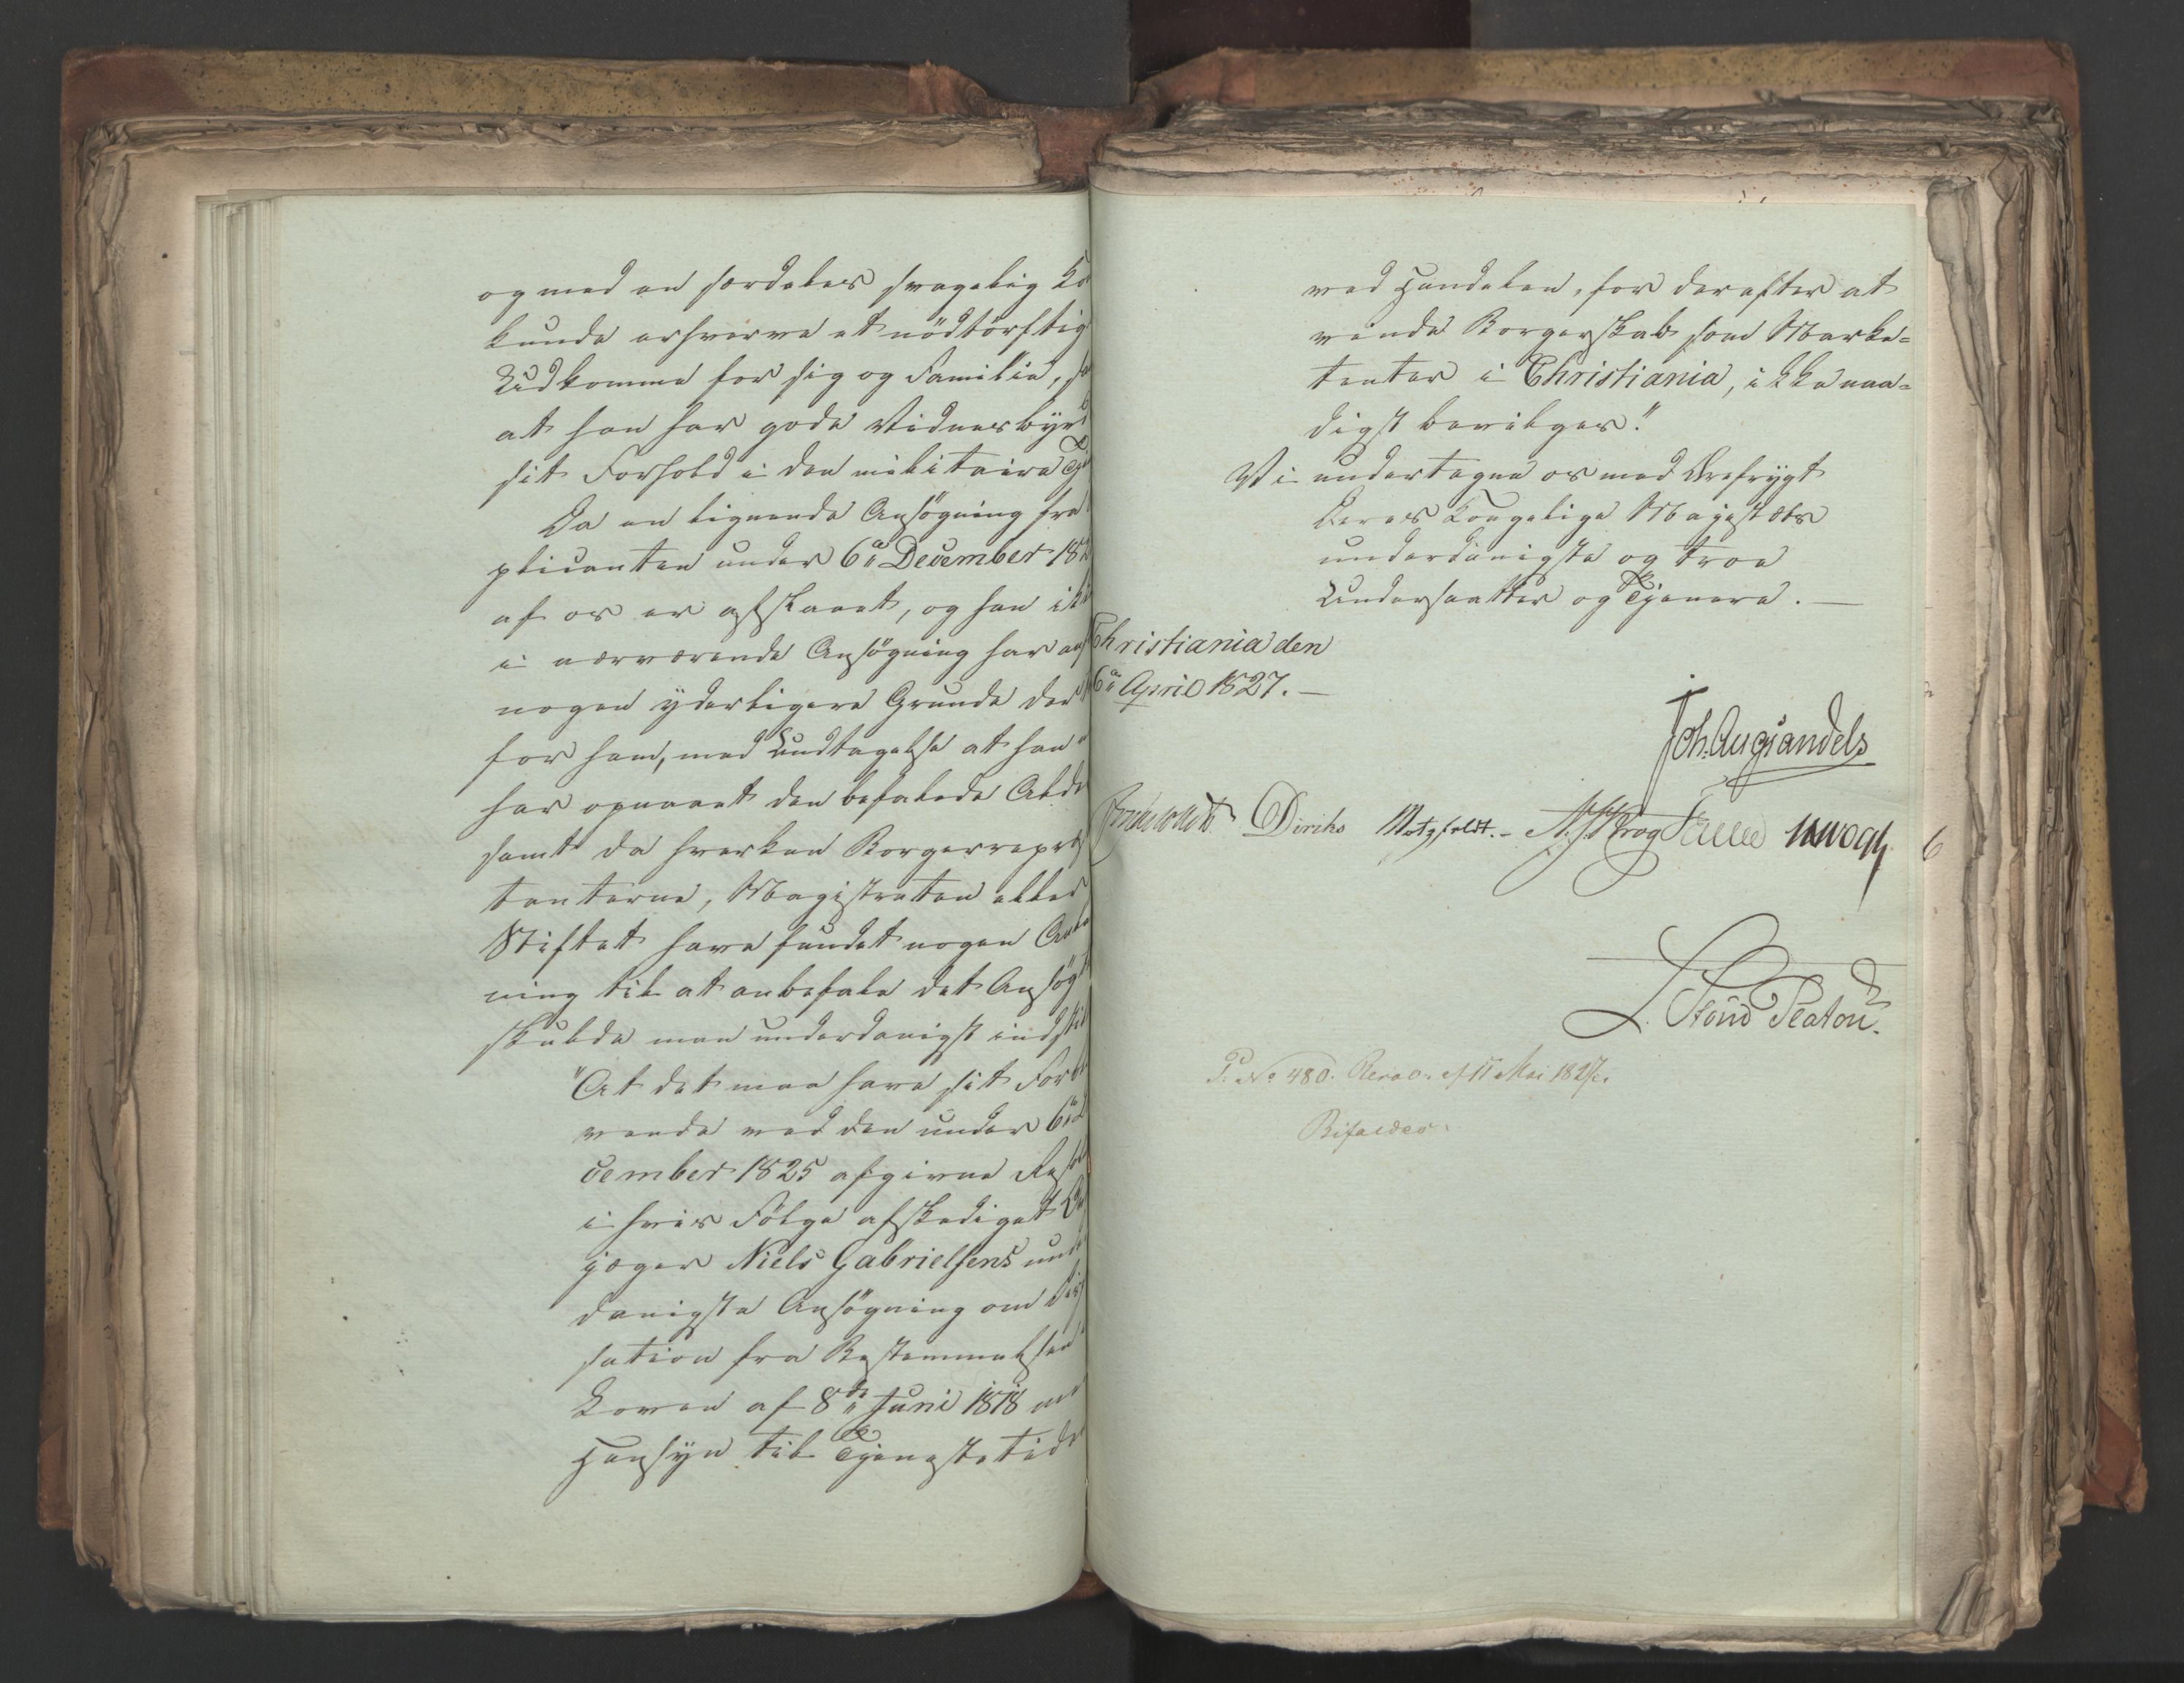 og med en særdeles svagelig Ko
kunde erhverve et nödtörftig
Udkomme for sig og Familie, sa
at han har gode Vidnesbyrd
sit Forhold i den militaire Tje
Da en lignende Ansögning fra
plicanten under 6te December 182
af os er afslaaet, og han ikk
i nærværende Ansögning har anf
nogen yderligere Grunde der
for ham, med Undtagelse at han
har opnaaet den befalede Alde
samt da hverken Borgerrepræ
tanterne, Magistraten eller
Stiftet have fundet nogen Anle
ning til at anbefale det Ansögt
skulde man underdanigst indstil
"At det maa have sit Forbl
vende ved den under 6te D
cember 1825 afgivne Resol
i hvis Fölge afskediget
jæger Niels Gabrielsens und
danigste Ansögning om Disp
sation fra Bestemmelsen
Loven af 8de Juni 1818 me
Hensyn til Tjenestetide
ved Handelen, for derefter at
vinde Borgerskab som Marke=
tenter i Christiania, ikke naa=
digst bevilges."
Vi undertegne os med Ærefrygt
Deres Kongelige Majestæts
underdanigste og troe
Undersaatter og Tjenere. —
Christiania den
6te April 1827. —
Joh. Aug Sandels
Diriks Motzfeldt. — A. S. Krog Falsen
L. Stoud Platou.
P. No 480. Resol. af 11 Mai 1827.
Bifaldes.
6